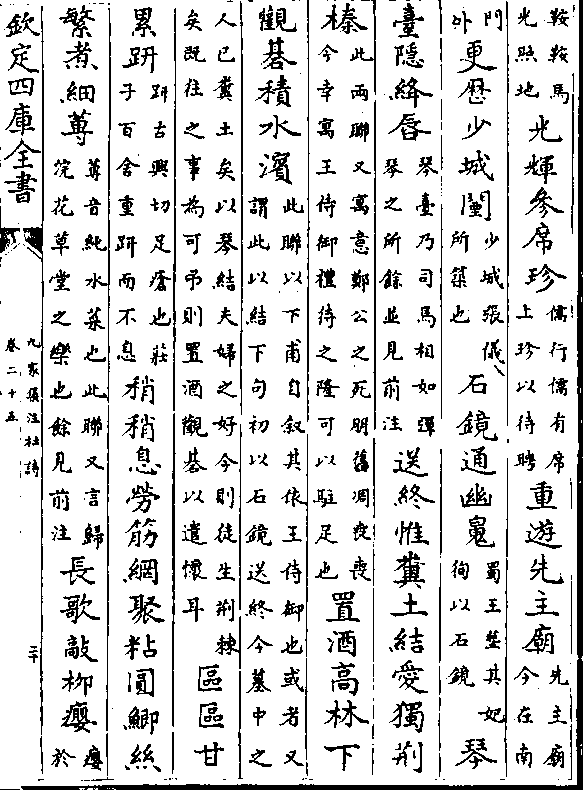 鞍鞍馬
光照地
光輝參席珍
儒行儒有席
上珍以待聘
重遊先主廟
先主廟
今在南
門
外
更歷少城闉
少城張儀
所築也
石鏡通幽䰟
蜀王塟其妃
徇以石鏡
琴
臺隱絳唇
琴臺乃司馬相如彈
琴之所餘並見前注
送終惟糞土結愛獨荆
榛
此兩聯又寓意鄭公之死明舊凋喪
今幸寓王侍御禮待之隆可以駐足也
置酒高林下
觀碁積水濱
此聯以下甫自叙其依王侍御也或者又
謂此以結下句初以石鏡送終今墓中之
人已糞土矣以琴結夫婦之好今則徒生荆棘
矣既往之事為可弔則置酒觀碁以遣懷耳
區區甘
累趼
趼古興切足瘡也莊
子百舍重趼而不息
稍稍息勞筋網聚粘圓鯽絲
繁煮細蓴
蓴音純水菜也此聯又言歸
浣花草堂之樂也餘見前注
長歌敲柳癭
癭
於
欽定四庫全書
九家集注杜詩
卷二十五